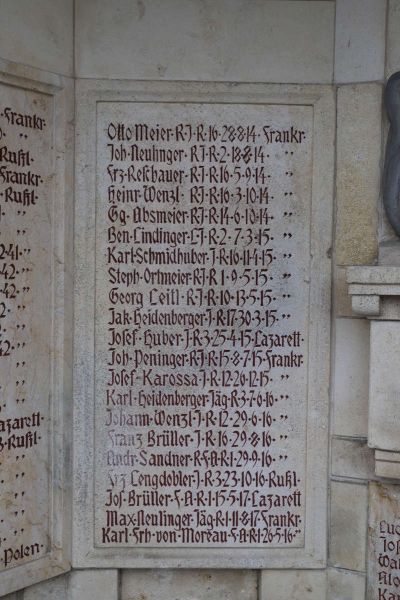 Frankr.
Rußl.
Frankr.
Rußl.
41 "
42 "
42 "
42 "
Lazarett
Rußl.
Polen
Otto Meier·R·J·R·16·28·8·14·Frankr.
Joh·Neulinger·RJ·R·2·18·8·14·"
Frz·Reßbauer·RJ·R·16·5·9·14·"
Heinr·Wenzl·RJ·R·16·3·10·14·"
Gg·Absmeier·RJ·R·14·6·10·14·"
Ben·Lindinger·LJ·R·2·7·3·15·"
Karl·Schmidhuber·J·R·16·11·4·15·"
Steph·Ortmeier·RJ·R·1·9·5·15·"
Georg Leitl·R·J·R·10·13·5·15·"
Jak·Heidenberger·J·R·17·30·3·15·"
Josef·Huber·J·R·3·25·4·15·Lazarett·
Joh·Peninger·RJ·R·15·8·7·15·Frankr
Josef·Karossa·J·R·12·26·12·15·"
Karl·Heidenberger·Jäg·R·3·7·6·16·"
Johann·Wenzl·J·R·12·29·6·16·"
Franz Brüller·J·R·16·29·8·16·"
Andr·Sandner·RFA·R·1·29·9·16·"
Frz·Lengdobler·J·R·3·23·10·16·Rußl.
Jos·Brüller·F·A·R·1·15·5·17·Lazarett
Max·Neulinger·Jäg·R·1·11·8·17·Frankr.
Karl·Frh·von·Moreau·F·A·R·1·26·5·16·"